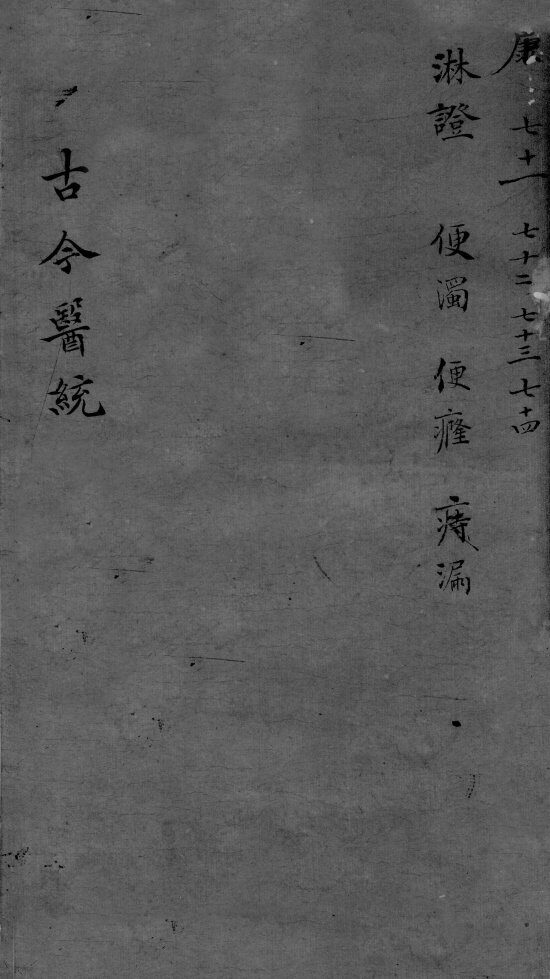 康 七十一 七十二 七十三 七十四
淋證 便濁 便癃 痔漏
古今醫統